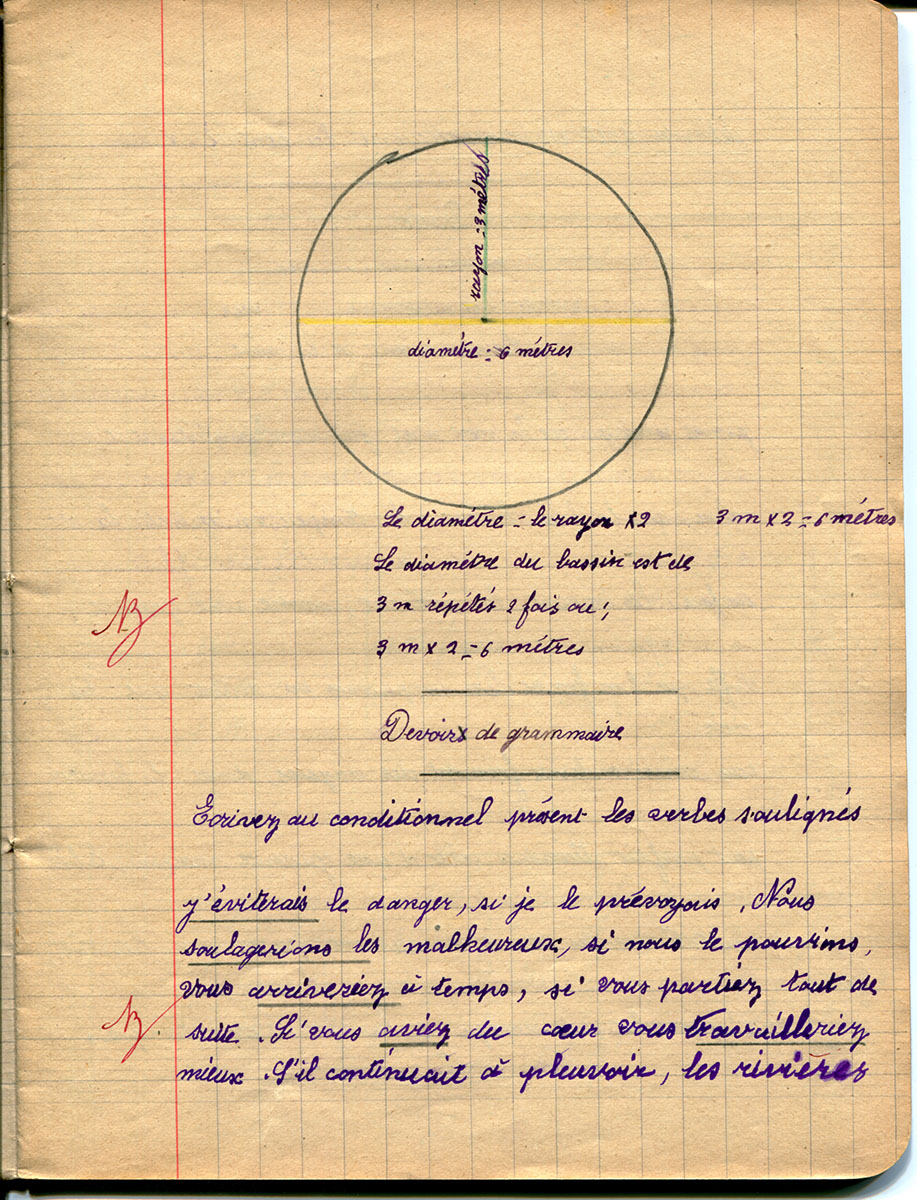 rayon = 3 métres
diamétre = 6 métres
Le diamétre = le rayon x 2 3 m x 2 = 6 métres
Le diamétre du bassin est de
3 m répétés 2 fois ou ;
3 m x 2 = 6 métres
B
Devoirs de grammaire
Ecrivez au conditionnel présent les verbes soulignés
j'éviterais le danger, si je le prévoyais. Nous
soulagerions les malheureux, si nous le pouvions,
vous arriveriez à temps, si vous partiez tout de
suite. Si vous aviez du cœur vous travailleriez
B
mieux. S'il continuait à pleuvoir, les rivières